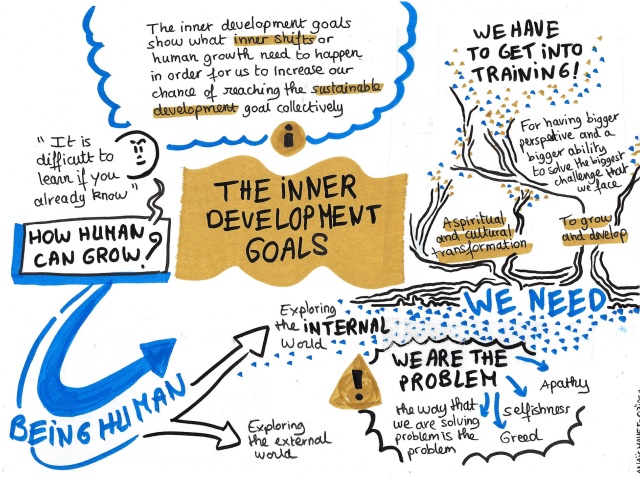 The inner development goals
show what inner shifts or
human growth need to happen
in order for us to increase our
chance of reaching the sustainable
development goal collectively
i
WE HAVE
TO GET INTO
TRAINING!
For having bigger
perspective and a
bigger ability
to solve the biggest
challenge that
we face
"It is
difficult to
learn if you
already know"
THE INNER
DEVELOPMENT
GOALS
HOW HUMAN
CAN GROW?
A spiritual
and cultural
transformation
To grow
and develop
WE NEED
BEING HUMAN
Exploring
the INTERNAL
World
Exploring
the external
world
!
WE ARE THE
PROBLEM
the way that
we are solving
problem is the
problem
Apathy
selfishness
Greed